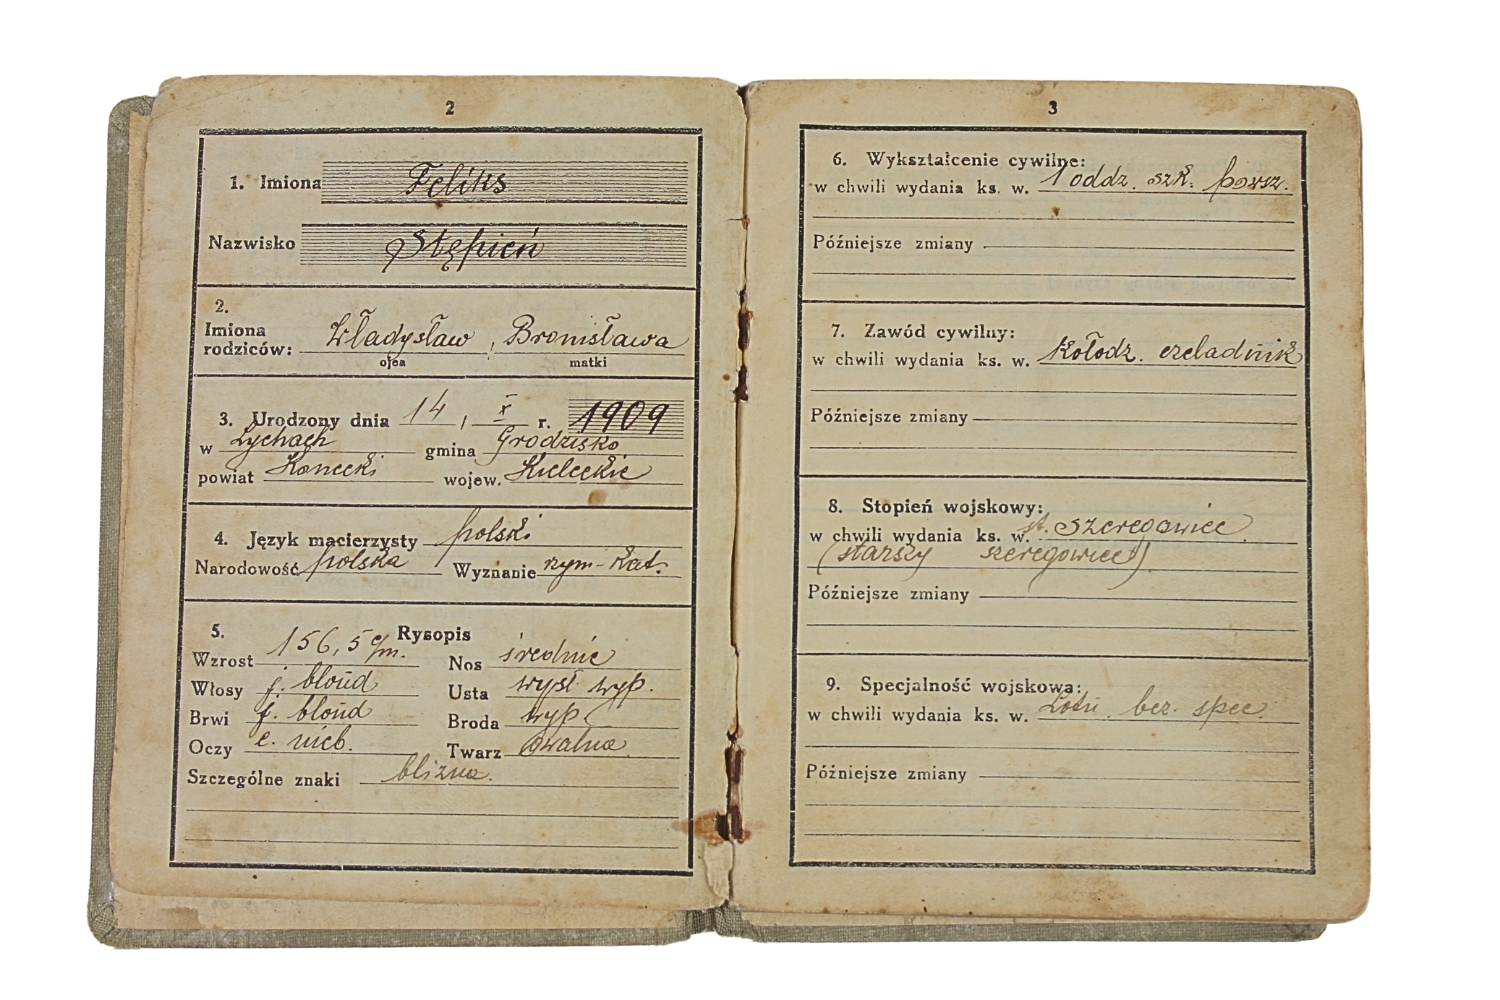 2
1. Imiona Feliks
Nazwisko Stępień
2.
Imiona
rodziców: Władysław, Bronisława
ojca matki
3. Urodzony dnia 14 / X r. 1909
w Łychach gmina Grodzisko
powiat Konecki wojew. Kieleckie
4. Język macierzysty polski
Narodowość polska Wyznanie rzym-kat.
5. Rysopis
Wzrost 156,5 c/m. Nos średnie
Włosy j. blond Usta wyst. wyp.
Brwi j. blond Broda wyp.
Oczy c. nieb. Twarz owalna
Szczególne znaki blizna.
3
6. Wykształcenie cywilne:
w chwili wydania ks. w. 1 oddz. szk. powsz.
Późniejsze zmiany
7. Zawód cywilny:
w chwili wydania ks. w. Kołodz. czeladnik
Późniejsze zmiany
8. Stopień wojskowy:
w chwili wydania ks. w. st. szeregowiec
(starszy szeregowiec).
Późniejsze zmiany
9. Specjalność wojskowa:
w chwili wydania ks. w. Lotn. bez. spec.
Późniejsze zmiany